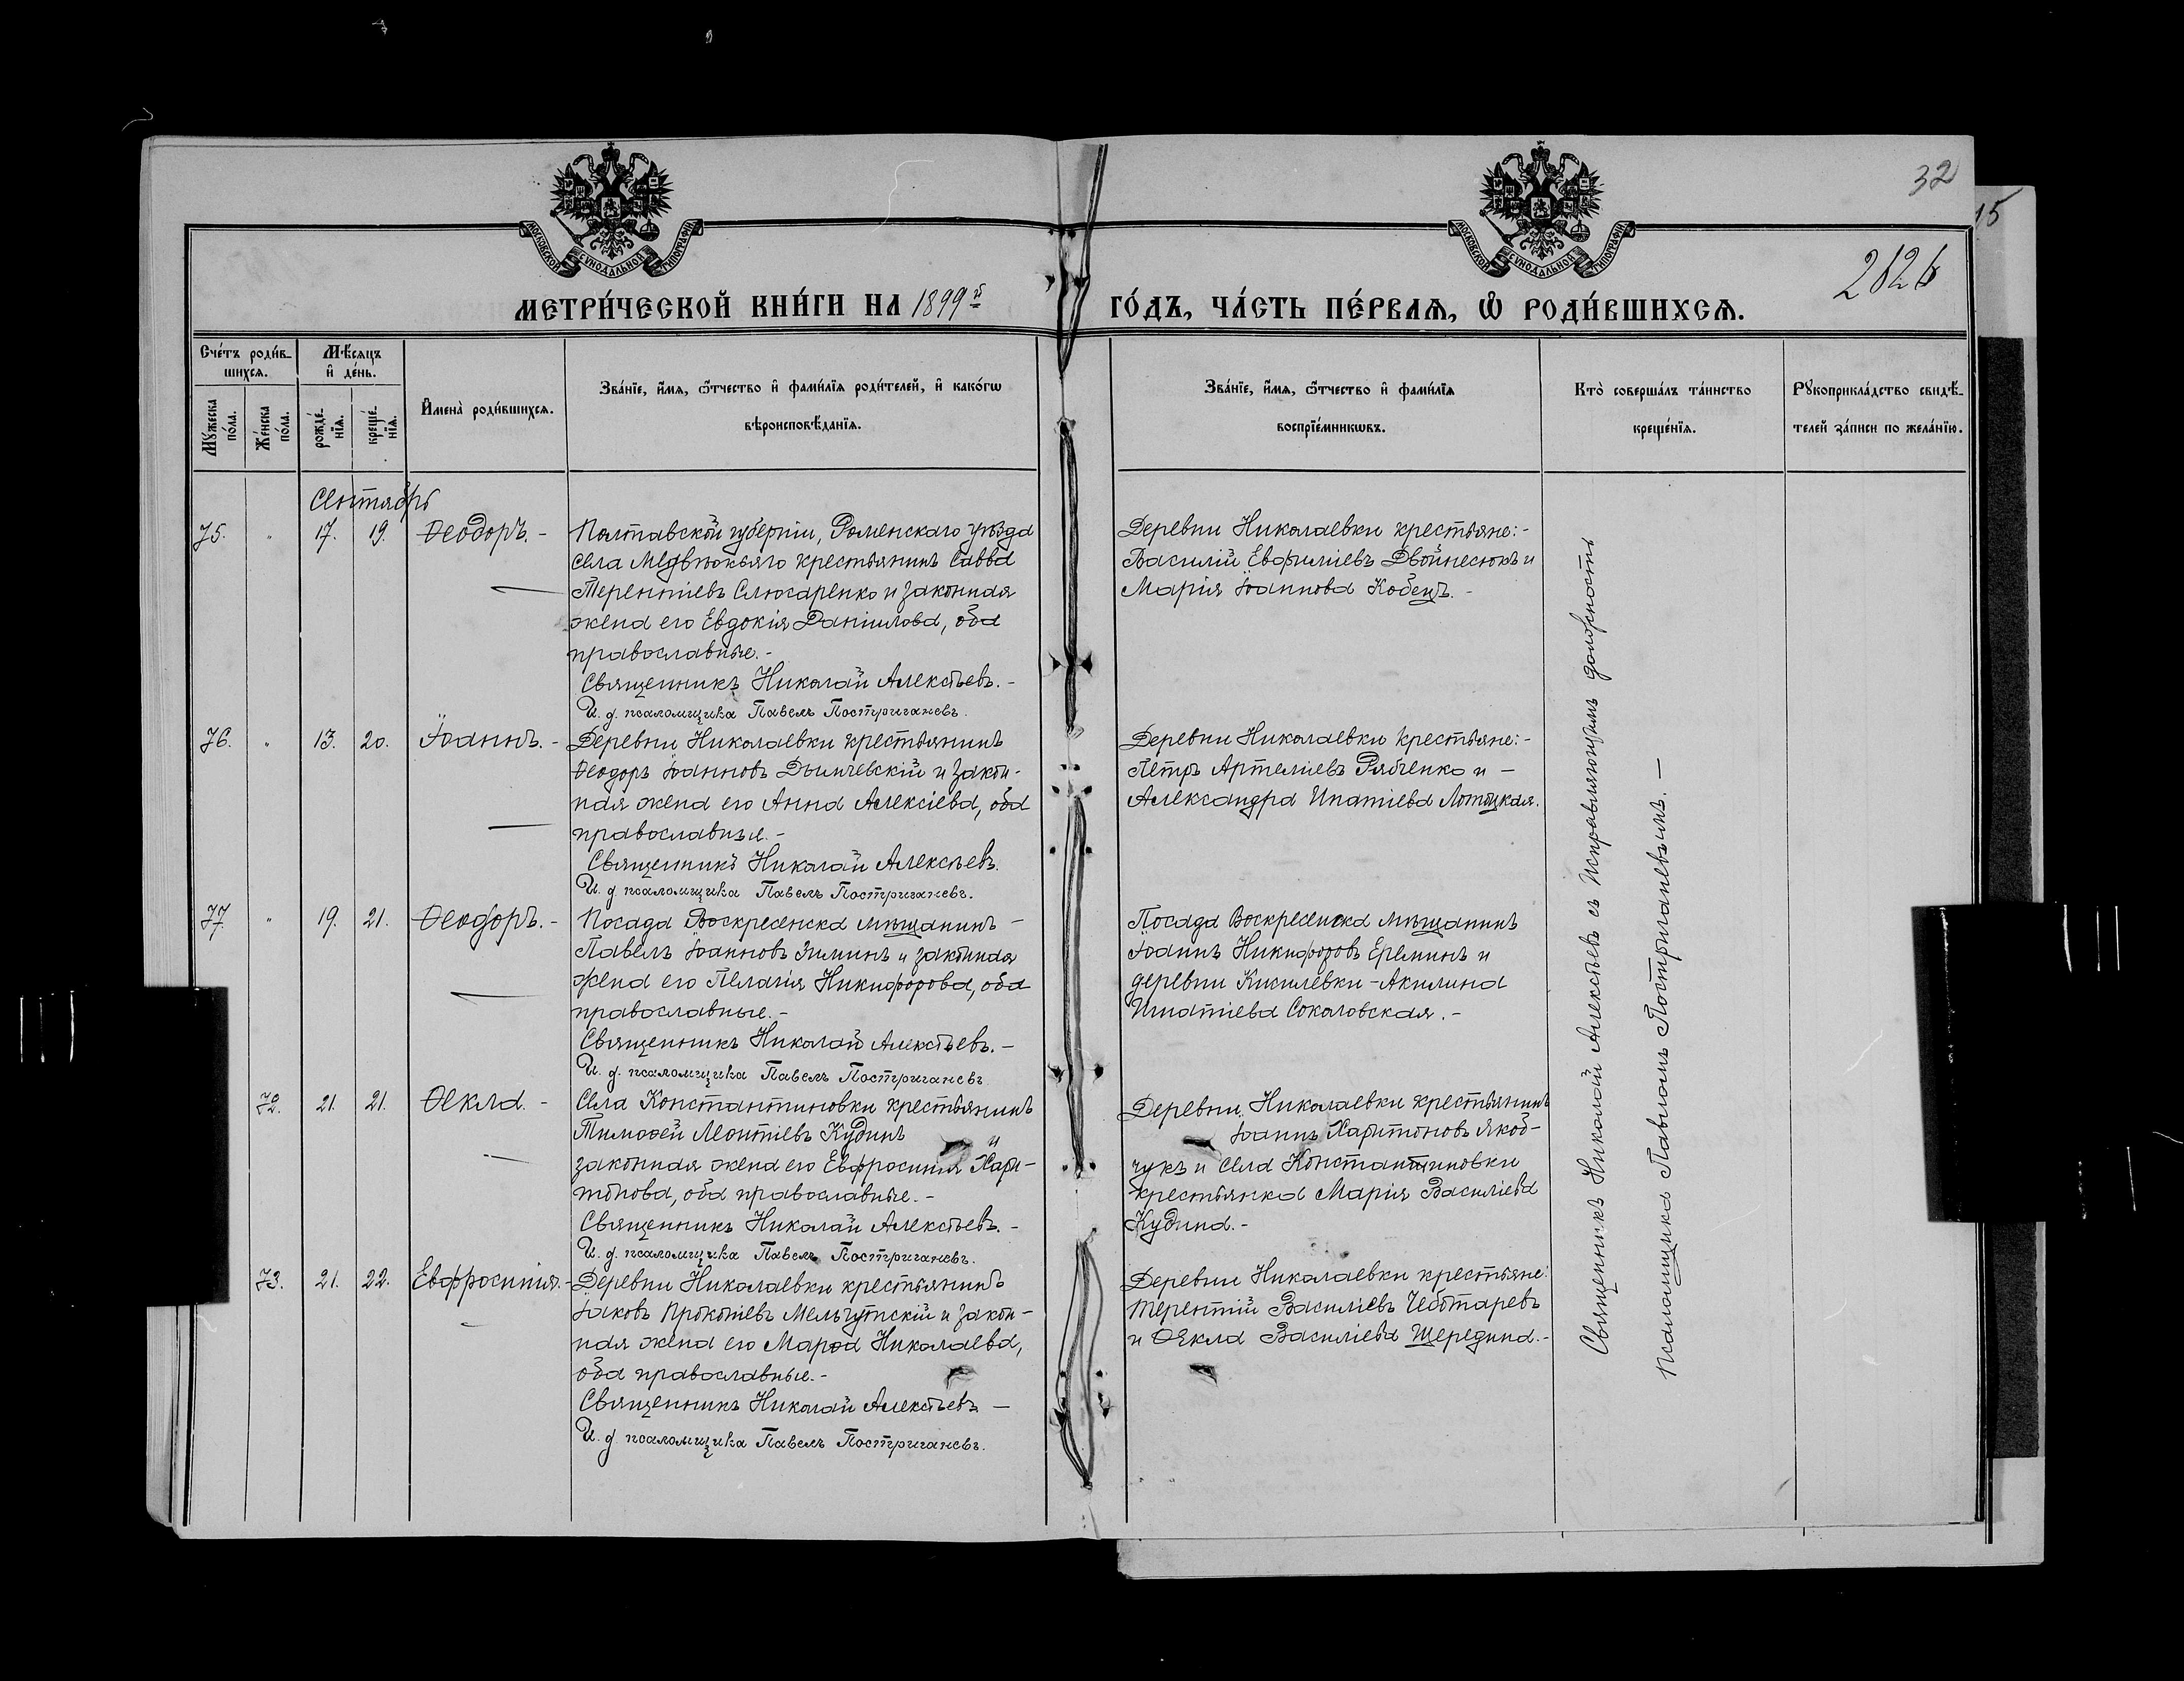 32
15
2826
МОСКОВСКОЙ СѴНОДАЛЬНОЙ ТИПОГРАФІИ
МОСКОВСКОЙ СѴНОДАЛЬНОЙ ТИПОГРАФІИ
МЕТРИ́ЧЕСКОЙ КНИ́ГИ НА 1899й ГО́ДЪ, ЧА́СТЬ ПЕ́РВАѦ, Ѡ҆ РОДИ́ВШИХСѦ.
Сче́тъ роди́в-
шихсѧ.
Мѣ́сяцъ
и҆ де́нь.
Мꙋ́жеска по́ла.
Же́нска по́ла.
рожде́-
нїѧ.
креще́-
нїѧ.
И҆мена̀ роди́вшихсѧ.
Зва́нїе, и҆́мѧ, ѻ҆́тчество и҆ фами́лїѧ роди́телей, и҆ како́гѡ
вѣроисповѣ́данїѧ.
Зва́нїе, и҆́мѧ, ѻ҆́тчество и҆ фами́лїѧ
воспрїе́мникѡвъ.
Кто̀ соверша́лъ та́инство
креще́нїѧ.
Рꙋкоприкла́дство свидѣ́-
телей за́писи по жела́нїю.
Сентябрь
75. " 17. 19. Ѳеодоръ. -
Полтавской губерніи, Роменскаго уѣзда
села Медвѣжьяго крестьянинъ Савва
Терентіевъ Слюсаренко и законная
жена его Евдокія Даніилова, оба
православные. -
Священникъ Николай Алексѣевъ. -
И. д. псаломщика Павелъ Постригачевъ.
Деревни Николаевки крестьяне: -
Василій Евфиміевъ Двойнесюкъ и
Марія Іоаннова Кобецъ. -
76. " 13. 20. Іоаннъ. -
Деревни Николаевки крестьянинъ
Ѳеодоръ Іоанновъ Дымчевскій и закон-
ная жена его Анна Алексіева, оба
православные. -
Священникъ Николай Алексѣевъ.
И. д. псаломщика Павелъ Постригачевъ.
Деревни Николаевки крестьяне: -
Петръ Артеміевъ Рябченко и -
Александра Ипатіева Лотоцкая.
77. " 19. 21. Ѳеодоръ. -
Посада Воскресенска мѣщанинъ -
Павелъ Іоанновъ Зиминъ и законная
жена его Пелагія Никифорова, оба
православные. -
Священникъ Николай Алексѣевъ. -
И. д. псаломщика Павелъ Постригачевъ
Посада Воскресенска мѣщанинъ
Іоаннъ Никифоровъ Ереминъ и
деревни Кисилевки - Акилина
Игнатіева Соколовская. -
72. 21. 21. Ѳекла. -
Села Константиновки крестьянинъ
Тимоѳей Леонтіевъ Кудинъ и
законная жена его Евфросинія Хари-
тонова, оба православные. -
Священникъ Николай Алексѣевъ. -
И. д. псаломщика Павелъ Постригачевъ.
Деревни Николаевки крестьянинъ
Іоаннъ Харитоновъ Якоб-
чукъ и села Константиновки
крестьянка Марія Василіева
Кудина. -
73. 21. 22. Евфросинія. -
Деревни Николаевки крестьянинъ
Іаковъ Прокопіевъ Мельгутскій и закон-
ная жена его Марѳа Николаева,
оба православные. -
Священникъ Николай Алексѣевъ -
И. д. псаломщика Павелъ Постригачевъ.
Деревни Николаевки крестьяне:
Терентій Василіевъ Чеботаревъ
и Ѳекла Василіева Щередина. -
Священникъ Николай Алексѣевъ съ исправляющимъ должность
псаломщика Павломъ Постригачевымъ. -